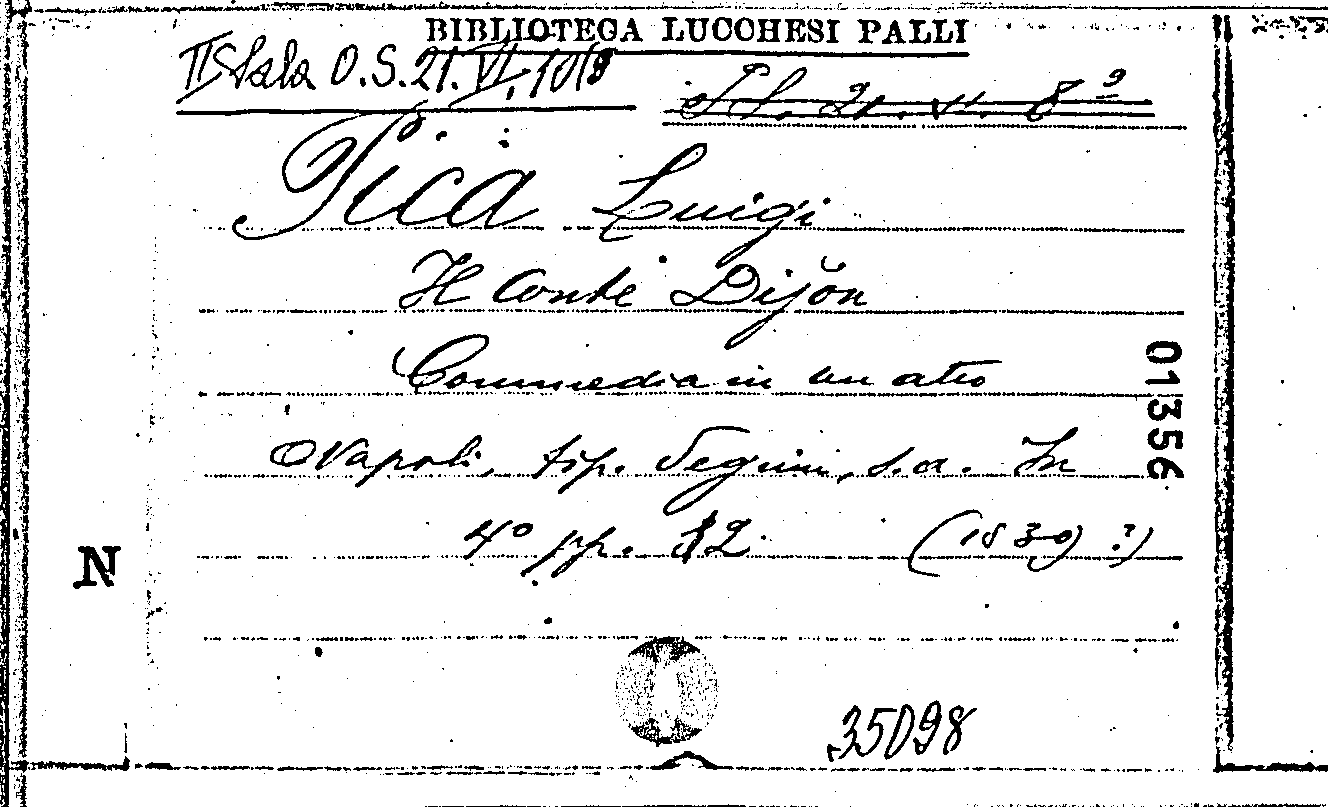 BIBLIOTECA LUCCHESI PALLI
II Sala O.S. 21. VI. 10/8
21. VI. 8 9
Pica Luigi
Il Conte Dijon
Commedia in un atto
Napoli, tip. Seguin, s.a. In
4° pp. 32. (1839?)
01356
N
35098